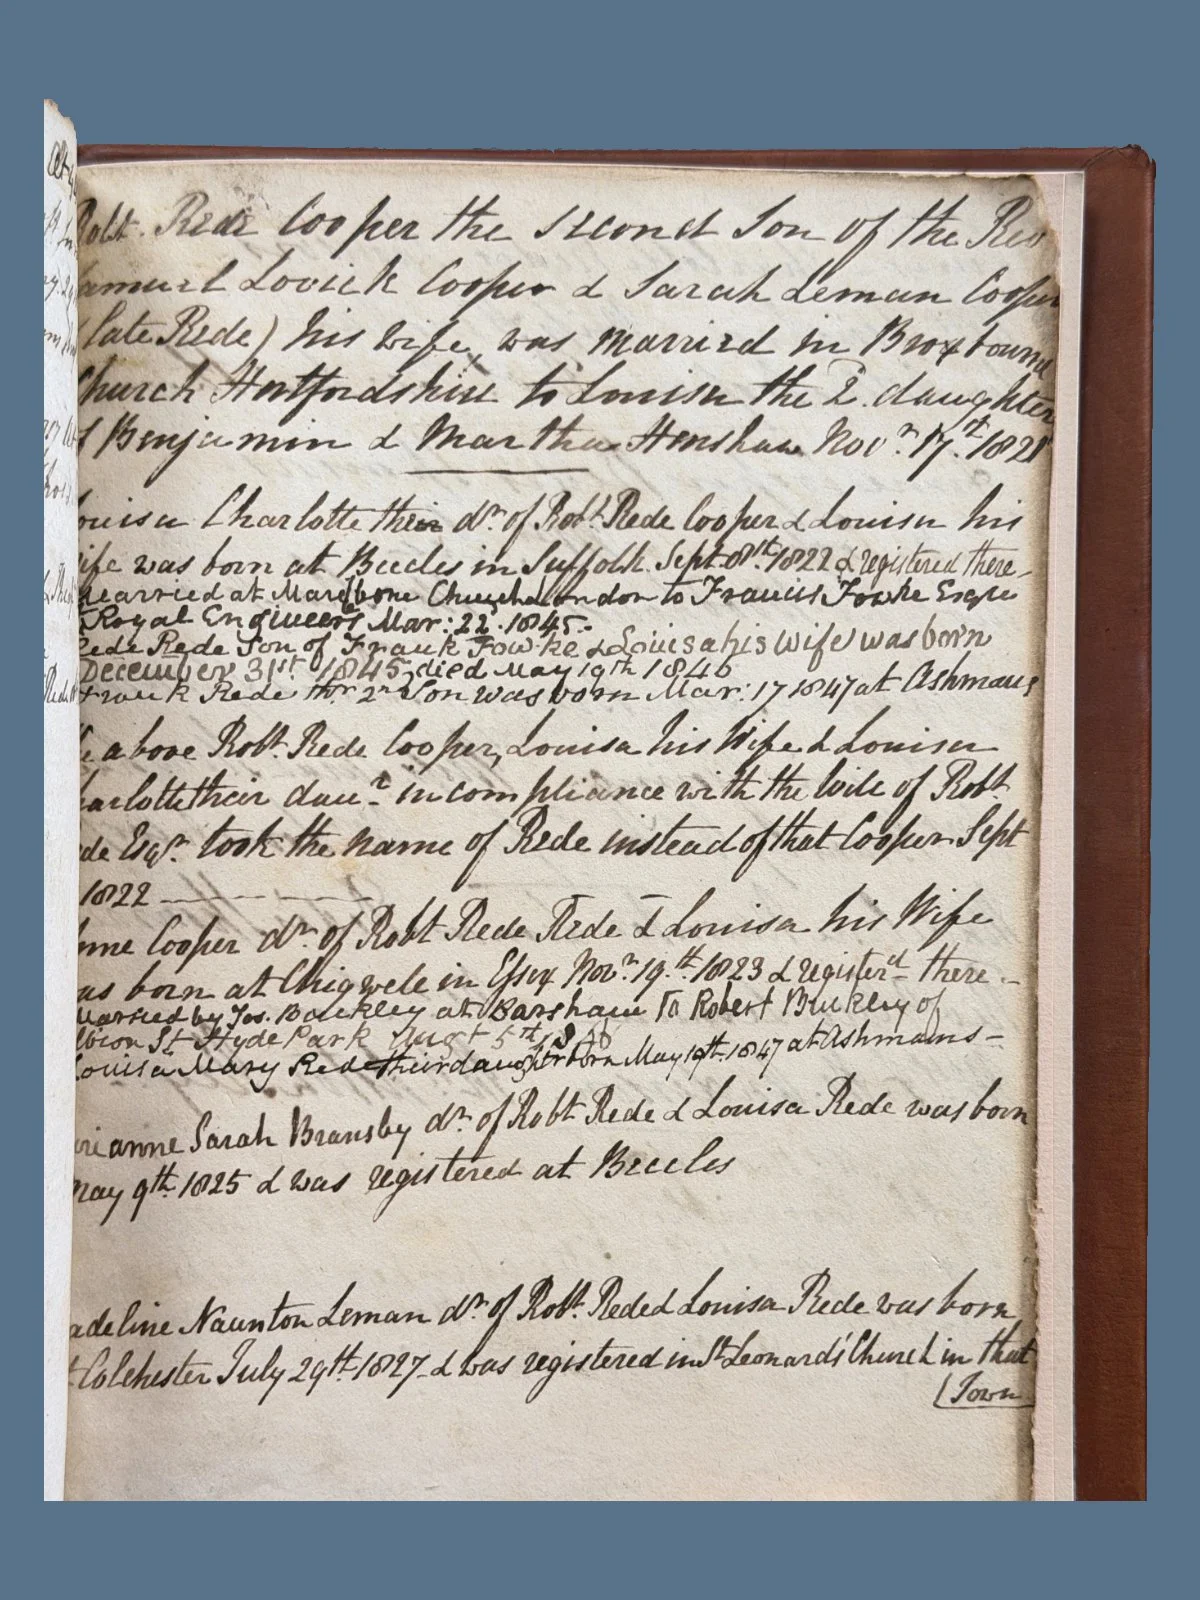 Robt. Rede Cooper the second Son of the Rev
amuel Lovick Cooper & Sarah Leman Cooper
(late Rede) his wife, was married in Broxbourne
Church Hertfordshire to Louisa the 2d. daughter
of Benjamin & Martha Henshaw Novr. 17th. 1821
ouisa Charlotte their dr. of Robt. Rede Cooper & Louisa his
ife was born at Beccles in Suffolk Sept. 1822 & registered there -
Married at Marlbone Church London to Francis Fowke Esqre
Royal Engineers Mar: 22. 1845.
Rede Rede Son of Frank Fowke & Louisa his wife was born
December 31st 1845, died May 19th 1846
Frank Rede thr. 2nd Son was born Mar: 17 1847 at Ashmans
e above Robt. Rede Cooper, Louisa his Wife & Louisa
harlotte their daur. in compliance with the Will of Robt
ede Esqr. took the name of Rede instead of that Cooper Sept
1822
nne Cooper dr. of Robt Rede Rede & Louisa his Wife
as born at Chigwell in Essex Novr. 19th. 1823 & registerd there -
Married by Jos. Buckley at Barsham To Robert Buckley of
lbion St Hyde Park 5th, 18
Louisa Mary Rede their daughter born May 19th. 1847 at Ashmans -
rianne Sarah Bransby dr. of Robt Rede & Louisa Rede was born
May 9th. 1825 & was registered at Beccles
adeline Naunton Leman dr. of Robt. Rede & Louisa Rede was born
t Colchester July 29th. 1827 & was registered in St Leonards' Church in that
(Town